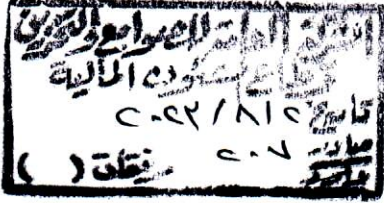 الشركة العامة للصوامع والتخزين
قطاع الشئون المالية
تاريخ ٢٠٢٣/٨/٢
صادر ٢٠٧
مرفقات ( )